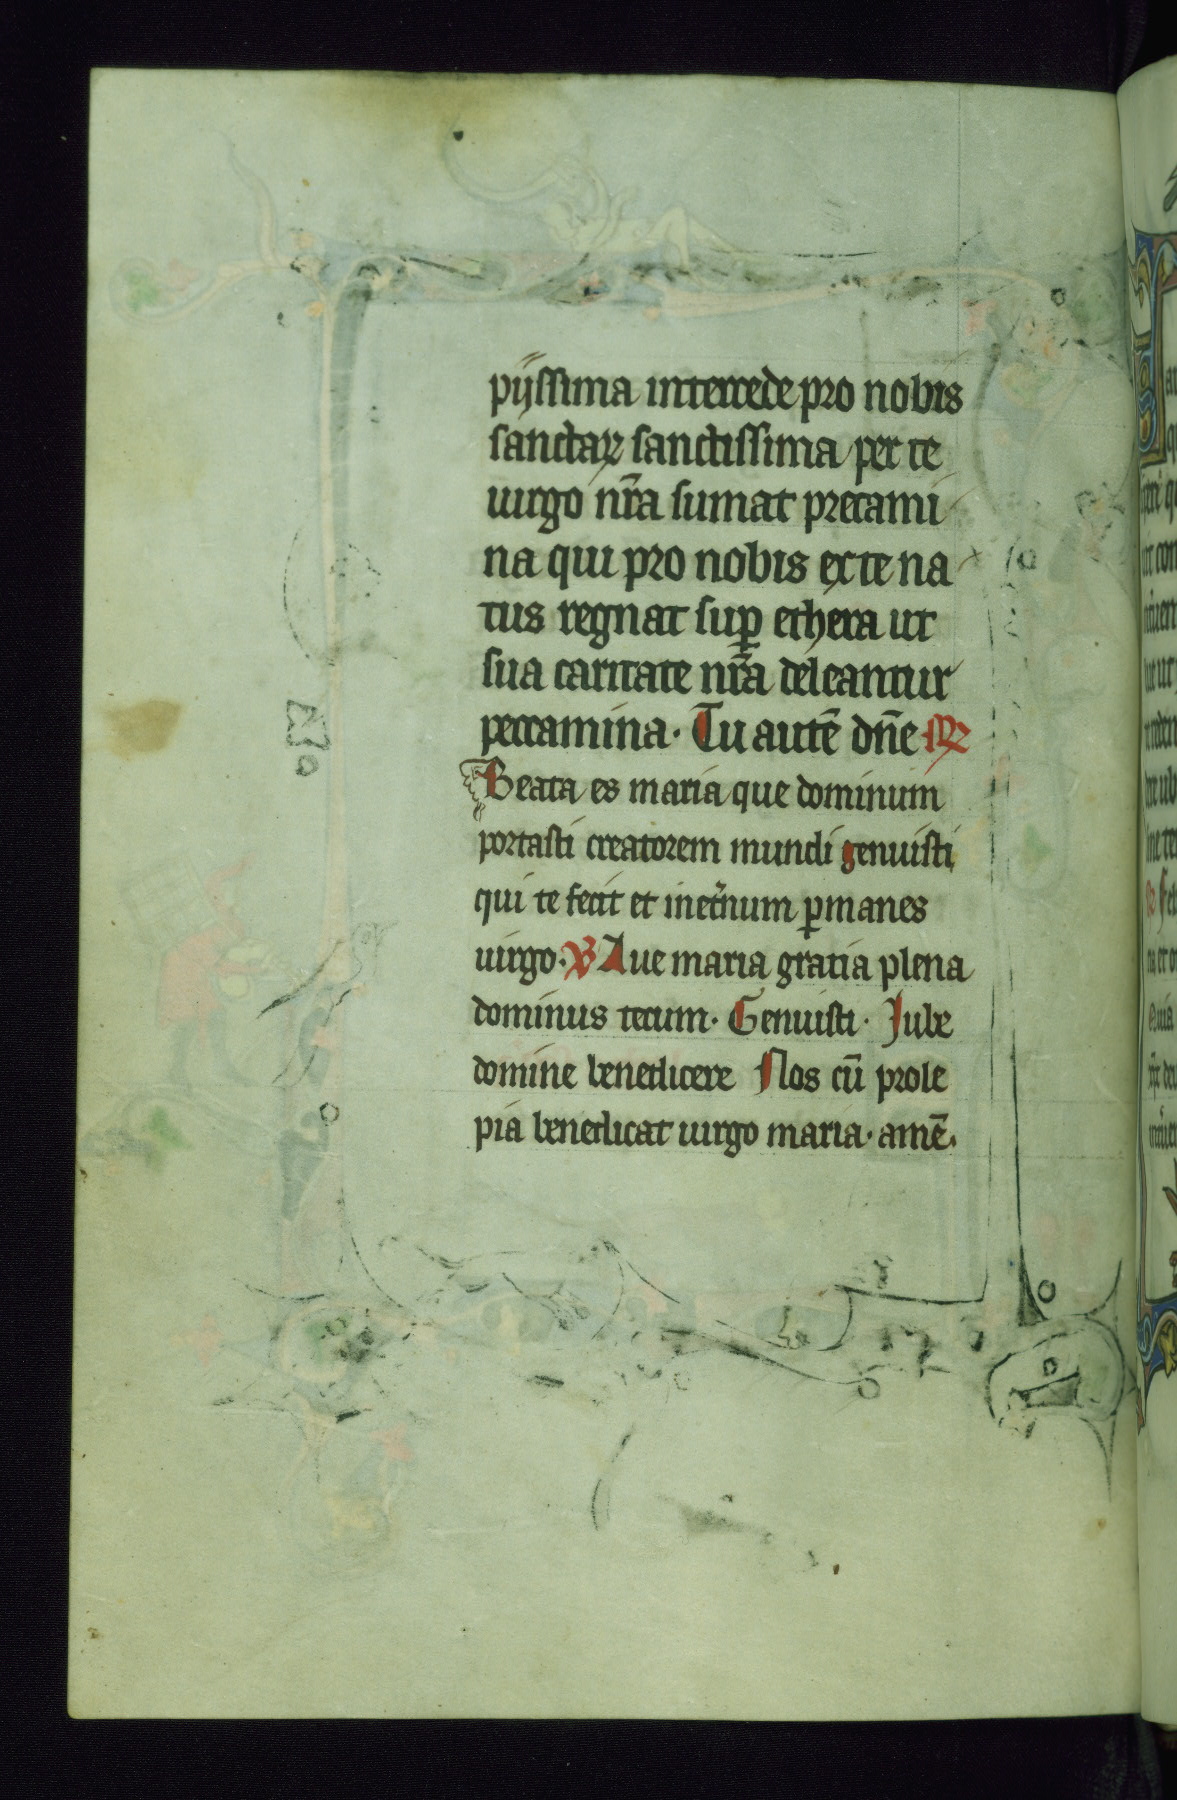 pijssima intercede pro nobis
sanctaꝝ sanctissima per te
uirgo nr̄a sumat precami
na qui pro nobis ex te na
tus regnat suꝑ ethera ut
sua caritate nr̄a deleantur
peccamina. Tu autē dn̄e ℞
Beata es maria que dominum
portasti creatorem mundi genuisti
qui te fecit et inet̾num ꝑmanes
uirgo. ℣ Aue maria gratia plena
dominus tecum. Genuisti. Iube
domine benedicere Nos cū prole
pia benedicat uirgo maria. amē.